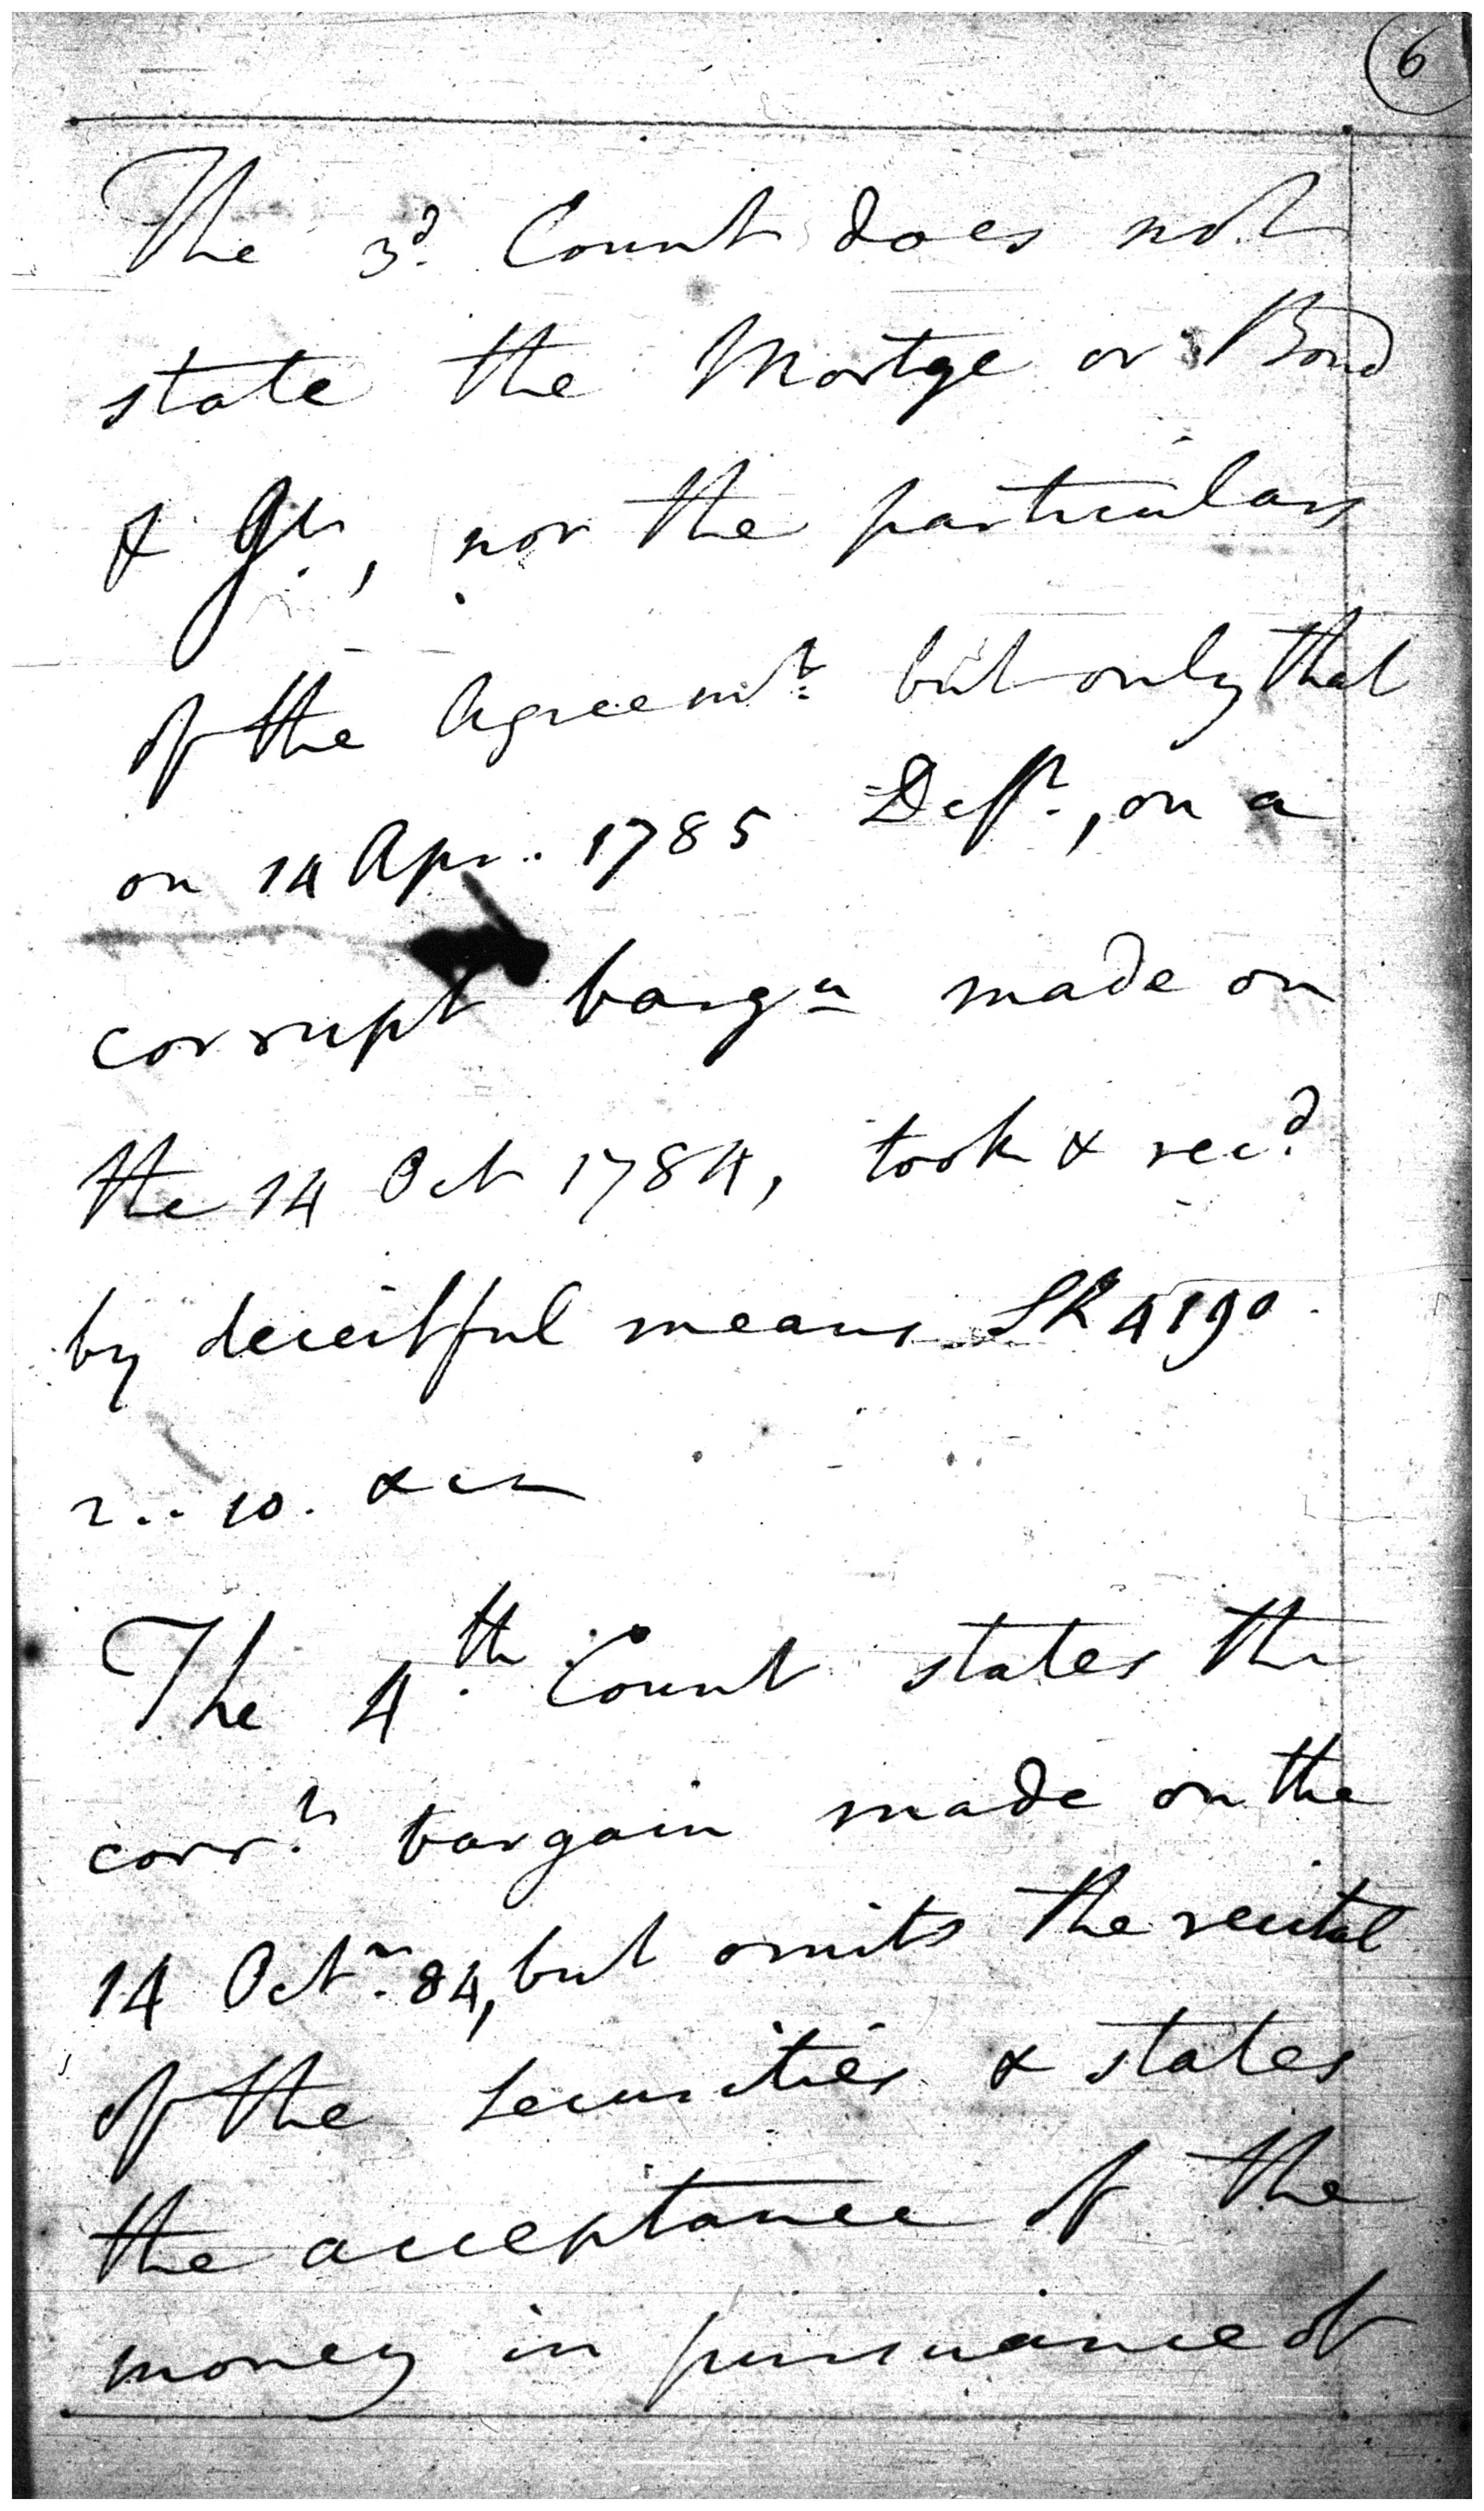 6
The 3d. Count does not
state the Mortge or Bond
&
, nor the particulars
of the Agreemt. but only that
on 14 Apr. 1785 Deft., on a
corrupt bargn made on
the 14 Oct 1784, took & recd.
by deceitful means SR 4190.
2..10. &c
The 4th. Count states the
corrt. bargain made on the
14 Octr. 84, but omits the recital
of the securities & states
the acceptance of the
money in pursuance of